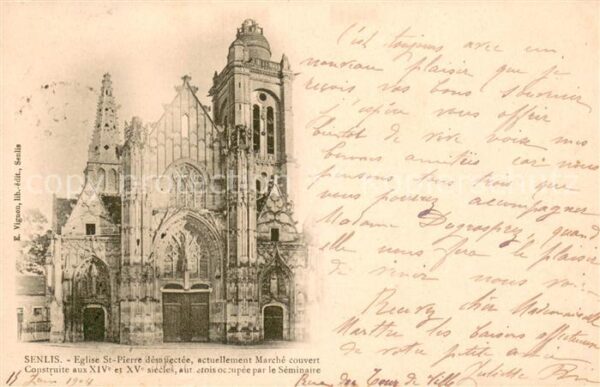 C'est toujours avec un
nouveau plaisir que je
reçois vos bons souvenirs
j'espère vous offrir
bientôt de vive voix mes
bonnes amitiés car nous
pensons que
vous pouvez accompagner
Madame quand
elle nous fera le plaisir
de venir nous voir.
Recevez chère Mademoiselle
Marthe les baisers affectueux
de votre petite amie
Juliette
E. Vignon, lib.-édit., Senlis
SENLIS. - Eglise St-Pierre désaffectée, actuellement Marché couvert
Construite aux XIVe et XVe siècles, autrefois occupée par le Séminaire
15 1904
Rue du Four de Ville